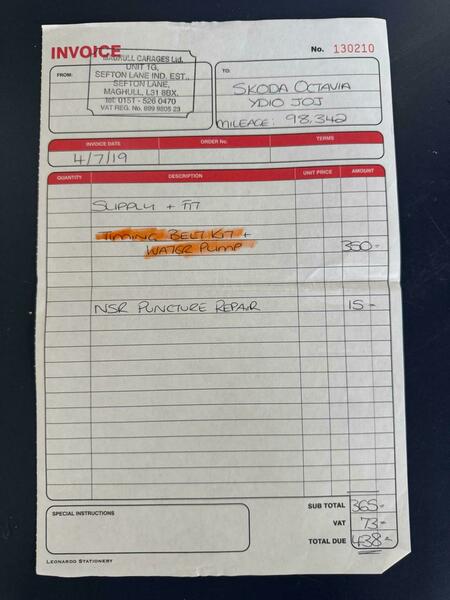 INVOICE
No. 130210
FROM:
MAGHULL GARAGES Ltd.
UNIT 1G,
SEFTON LANE IND. EST.,
SEFTON LANE,
MAGHULL, L31 8BX.
tel: 0151 - 526 0470
VAT REG. No. 899 9805 23
TO:
SKODA OCTAVIA
YD10 JOJ
MILEAGE: 98,342
INVOICE DATE
ORDER No.
TERMS
4/7/19
QUANTITY DESCRIPTION UNIT PRICE AMOUNT
SUPPLY + FIT
TIMING BELT KIT +
WATER PUMP 350-
NSR PUNCTURE REPAIR 15-
SPECIAL INSTRUCTIONS
SUB TOTAL 365-
VAT 73-
TOTAL DUE 438-
LEONARDO STATIONERY